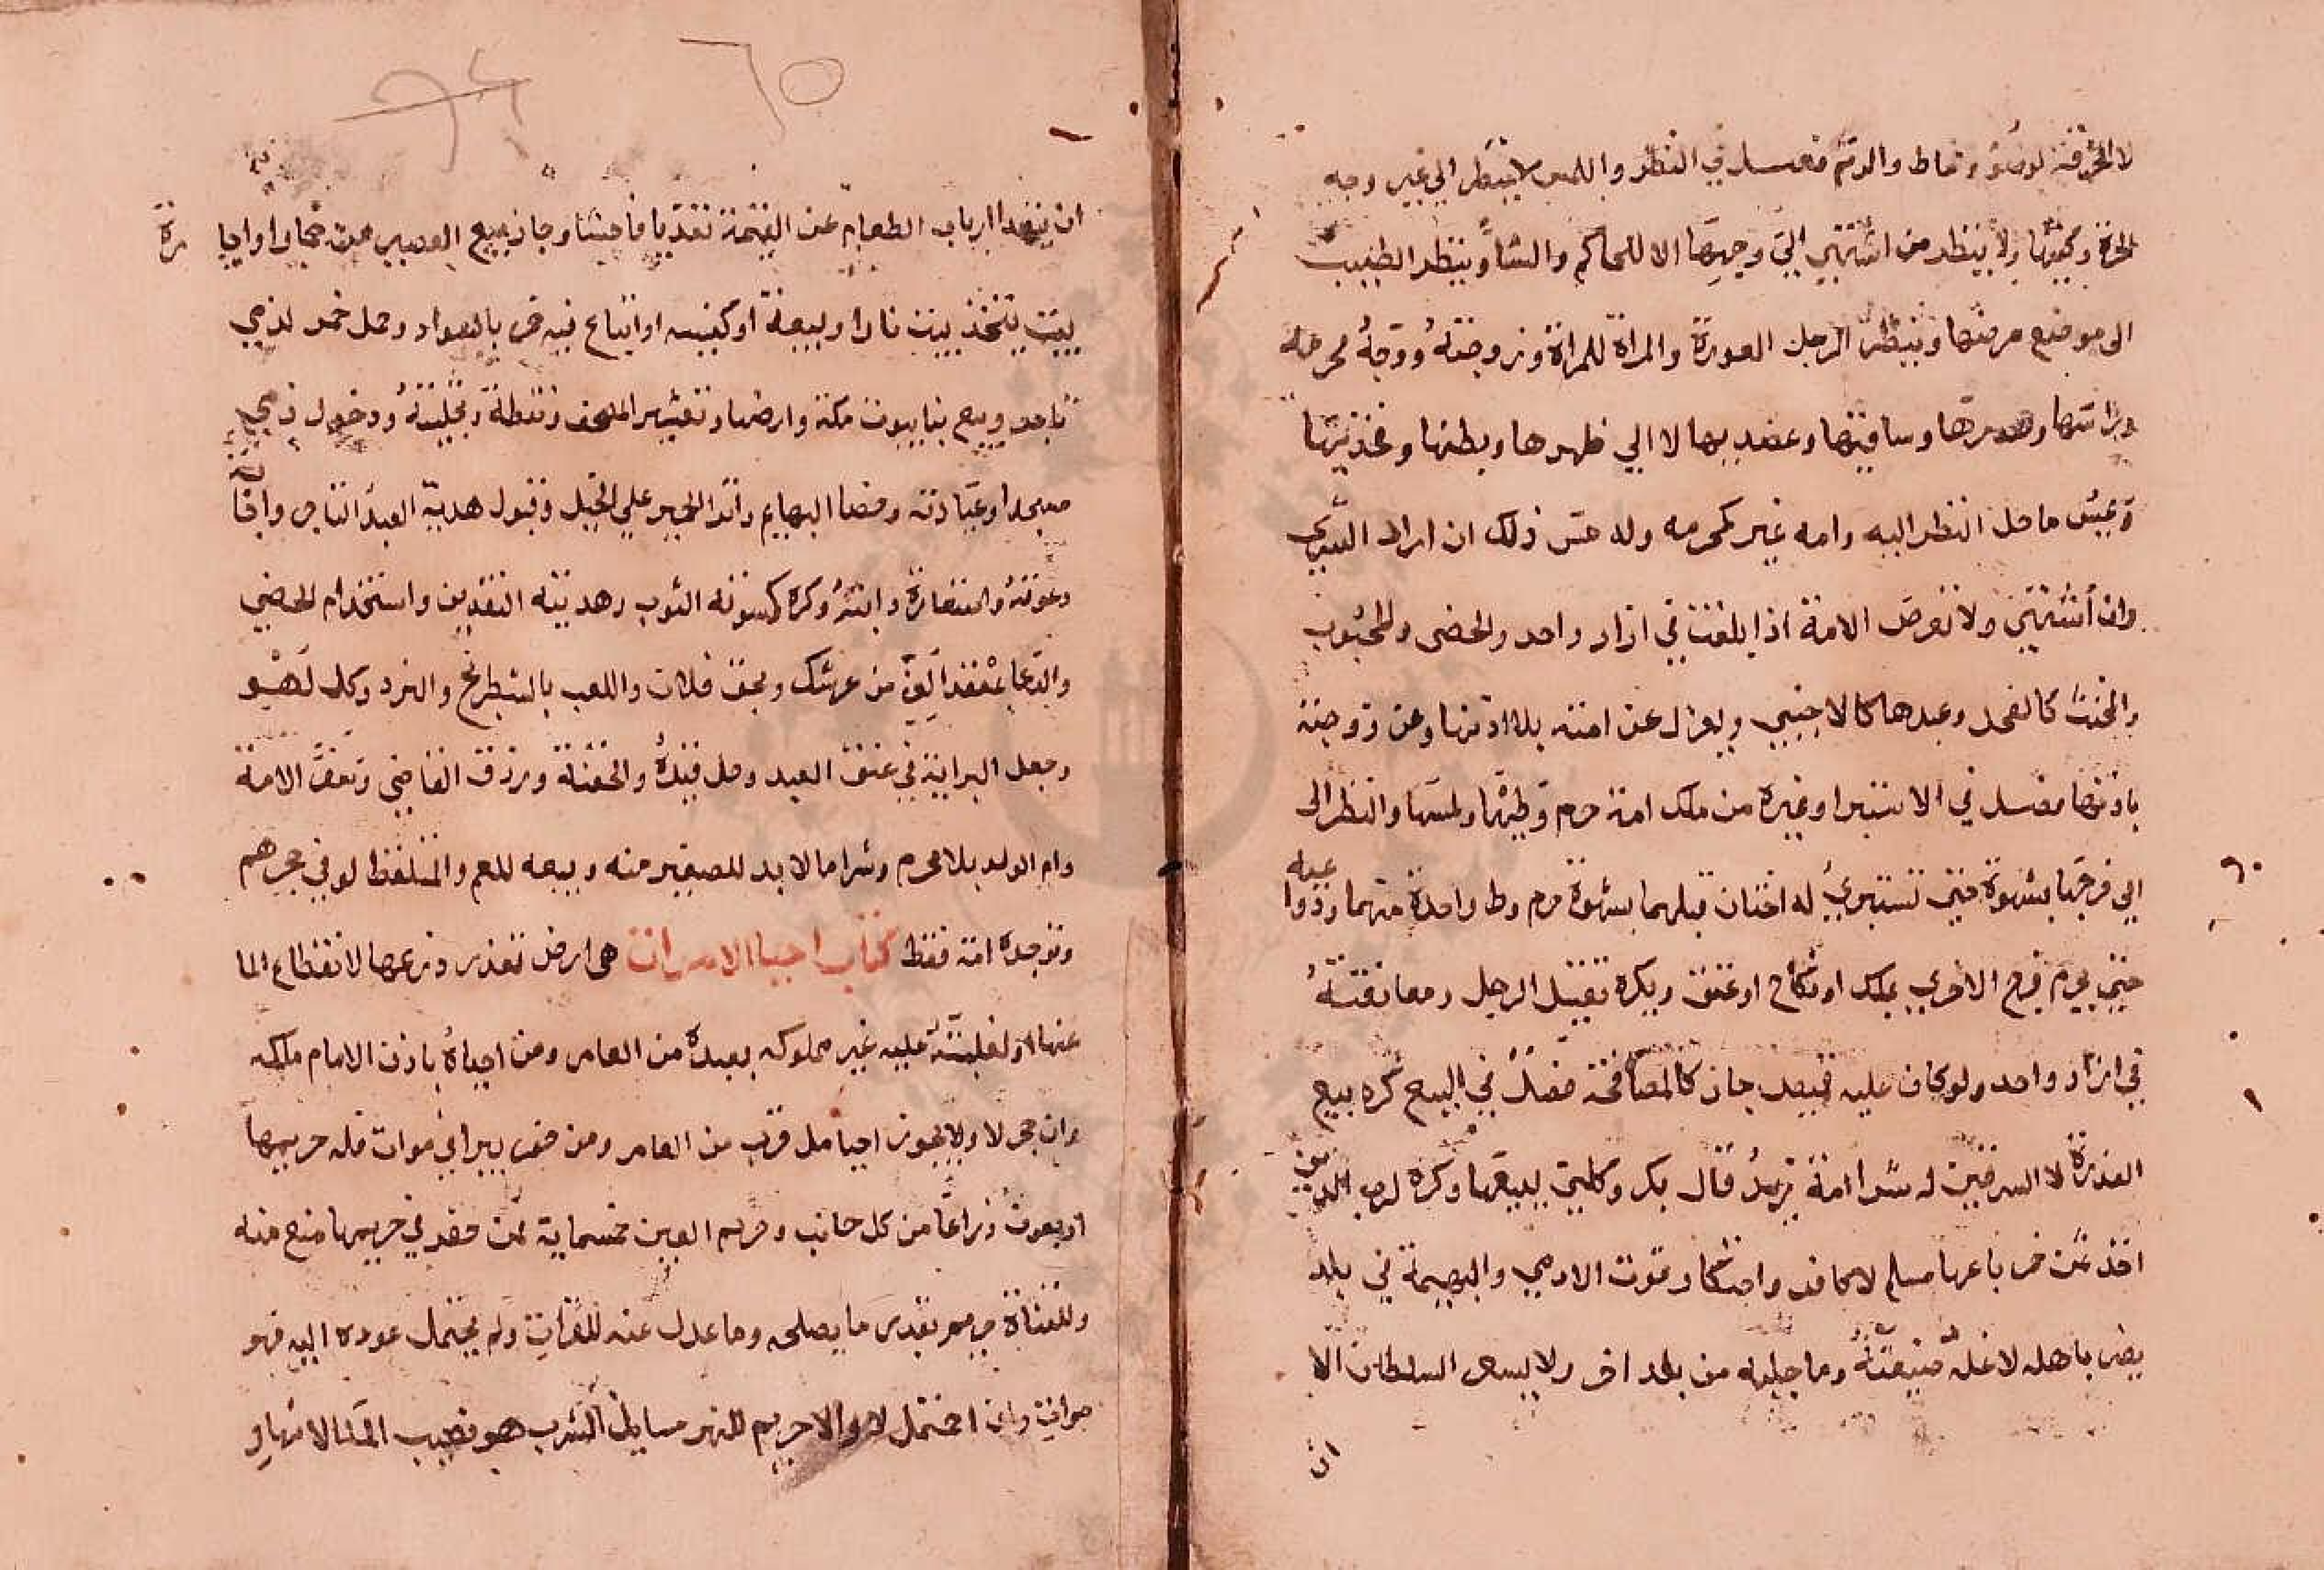 لا الخرقة لوضوء ومخاط والرتم فصل في النظر واللمس لا ينظر الى غير وجه
الحرة وكفيها ولا ينظر من اشتهى الى وجهها الا الحاكم والشا وينظر الطبيب
الى موضع مرضها وينظر الرجل العورة والمراة للمراة وزوجته ووجه محرمه
وراسها وصدرها وساقيها وعضديها لا الي ظهرها وبطنها وفخذيها
ويمس ما حل النظر اليه وامه غير كمحرمه وله مس ذلك ان اراد الشري
وان اشتهي ولا تعرض الامة اذا بلغت في ازار واحد والخصى والمجبوب
والمخنث كالفحل وعبدها كالاجنبي ويعزل عن امته بلا اذنها وعن زوجته
باذنها فصل في الاستبرا وغيره من ملك امة حرم وطيها ولمسها والنظر الى
الي فرجها بشهوة حتى تستبري له اختان قبلهما بشهوة حرم وطا واحدة منهما ودواعيه
حتى يحرم فرج الاخري بملك او نكاح او عتق ويكره تقبيل الرجل ومعانقته
في ازار واحد ولو كان عليه قميص جاز كالمصافحة فصل في البيع كره بيع
العذرة لا السرقين له شرا امة زيد قال بكر وكلني ببيعها وكره لرب الدين
اخذ ثمن خمر باعها مسلم لا كافر واحتكار قوت الادمي والبهيمة في بلد
يضر باهله لا غلة ضيعته وما جلبه من بلد اخر ولا يسعر السلطان الا
ان
٦٥
ان يتعدا ارباب الطعام عن القيمة تعديا فاحشا وجاز بيع العصير من خمار واجارة
بيت يتخذ بيت نار او بيعة او كنيسه او يباع فيه خمر بالسواد وحمل خمر لذمي
باجر وبيع بنا بيوت مكة وارضها وتعشير المصحف ونقطه وتحليته ودخول ذمي
مسجدا وعيادته وخصا البهايم وانزا الحمير على الخيل وقبول هدية العبد التاجر واجابة
دعوته واستعارة دابته وكره كسوته الثوب وهديته النقدين واستخدام الخصي
والدعا بمقعد العز من عرشك وبحق فلان واللعب بالشطرنج والنرد وكل لهو
وجعل الراية في عنق العبد وحل قيده والحقنة ورزق القاضي وسفر الامة
وام الولد بلا محرم وشرا ما لا بد للصغير منه وبيعه للعم والملتقط لو في حجرهم
وتوجره امه فقط كتاب احيا الاموات هى ارض تعذر زرعها لانقطاع الما
عنها او لغلبته عليه غير مملوكه بعيدة من العامر ومن احياه باذن الامام ملكه
وان حجر لا ولا يجوز احيا ما قرب من العامر ومن حفر بيرا في موات فله حريمها
اربعون ذراعا من كل جانب وحريم العين خمسماية فمن حفر في حريمها منع منه
وللقناة حريم بقدر ما يصلحه وما عدل عنه الفرات ولم يحتمل عوده اليه فهو
موات وان احتمل لا ولا حريم للنهر مسايل الشرب هو نصيب الما الانهار